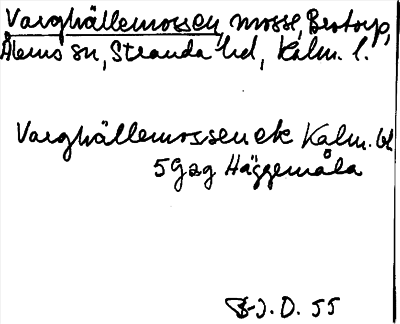 Varghällemossen, mosse, Bertorp,
Ålems sn, Stranda hd, Kalm. l.
Varghällemossen ek Kalm. bl
5G2g Häggemåla
J. D. 55